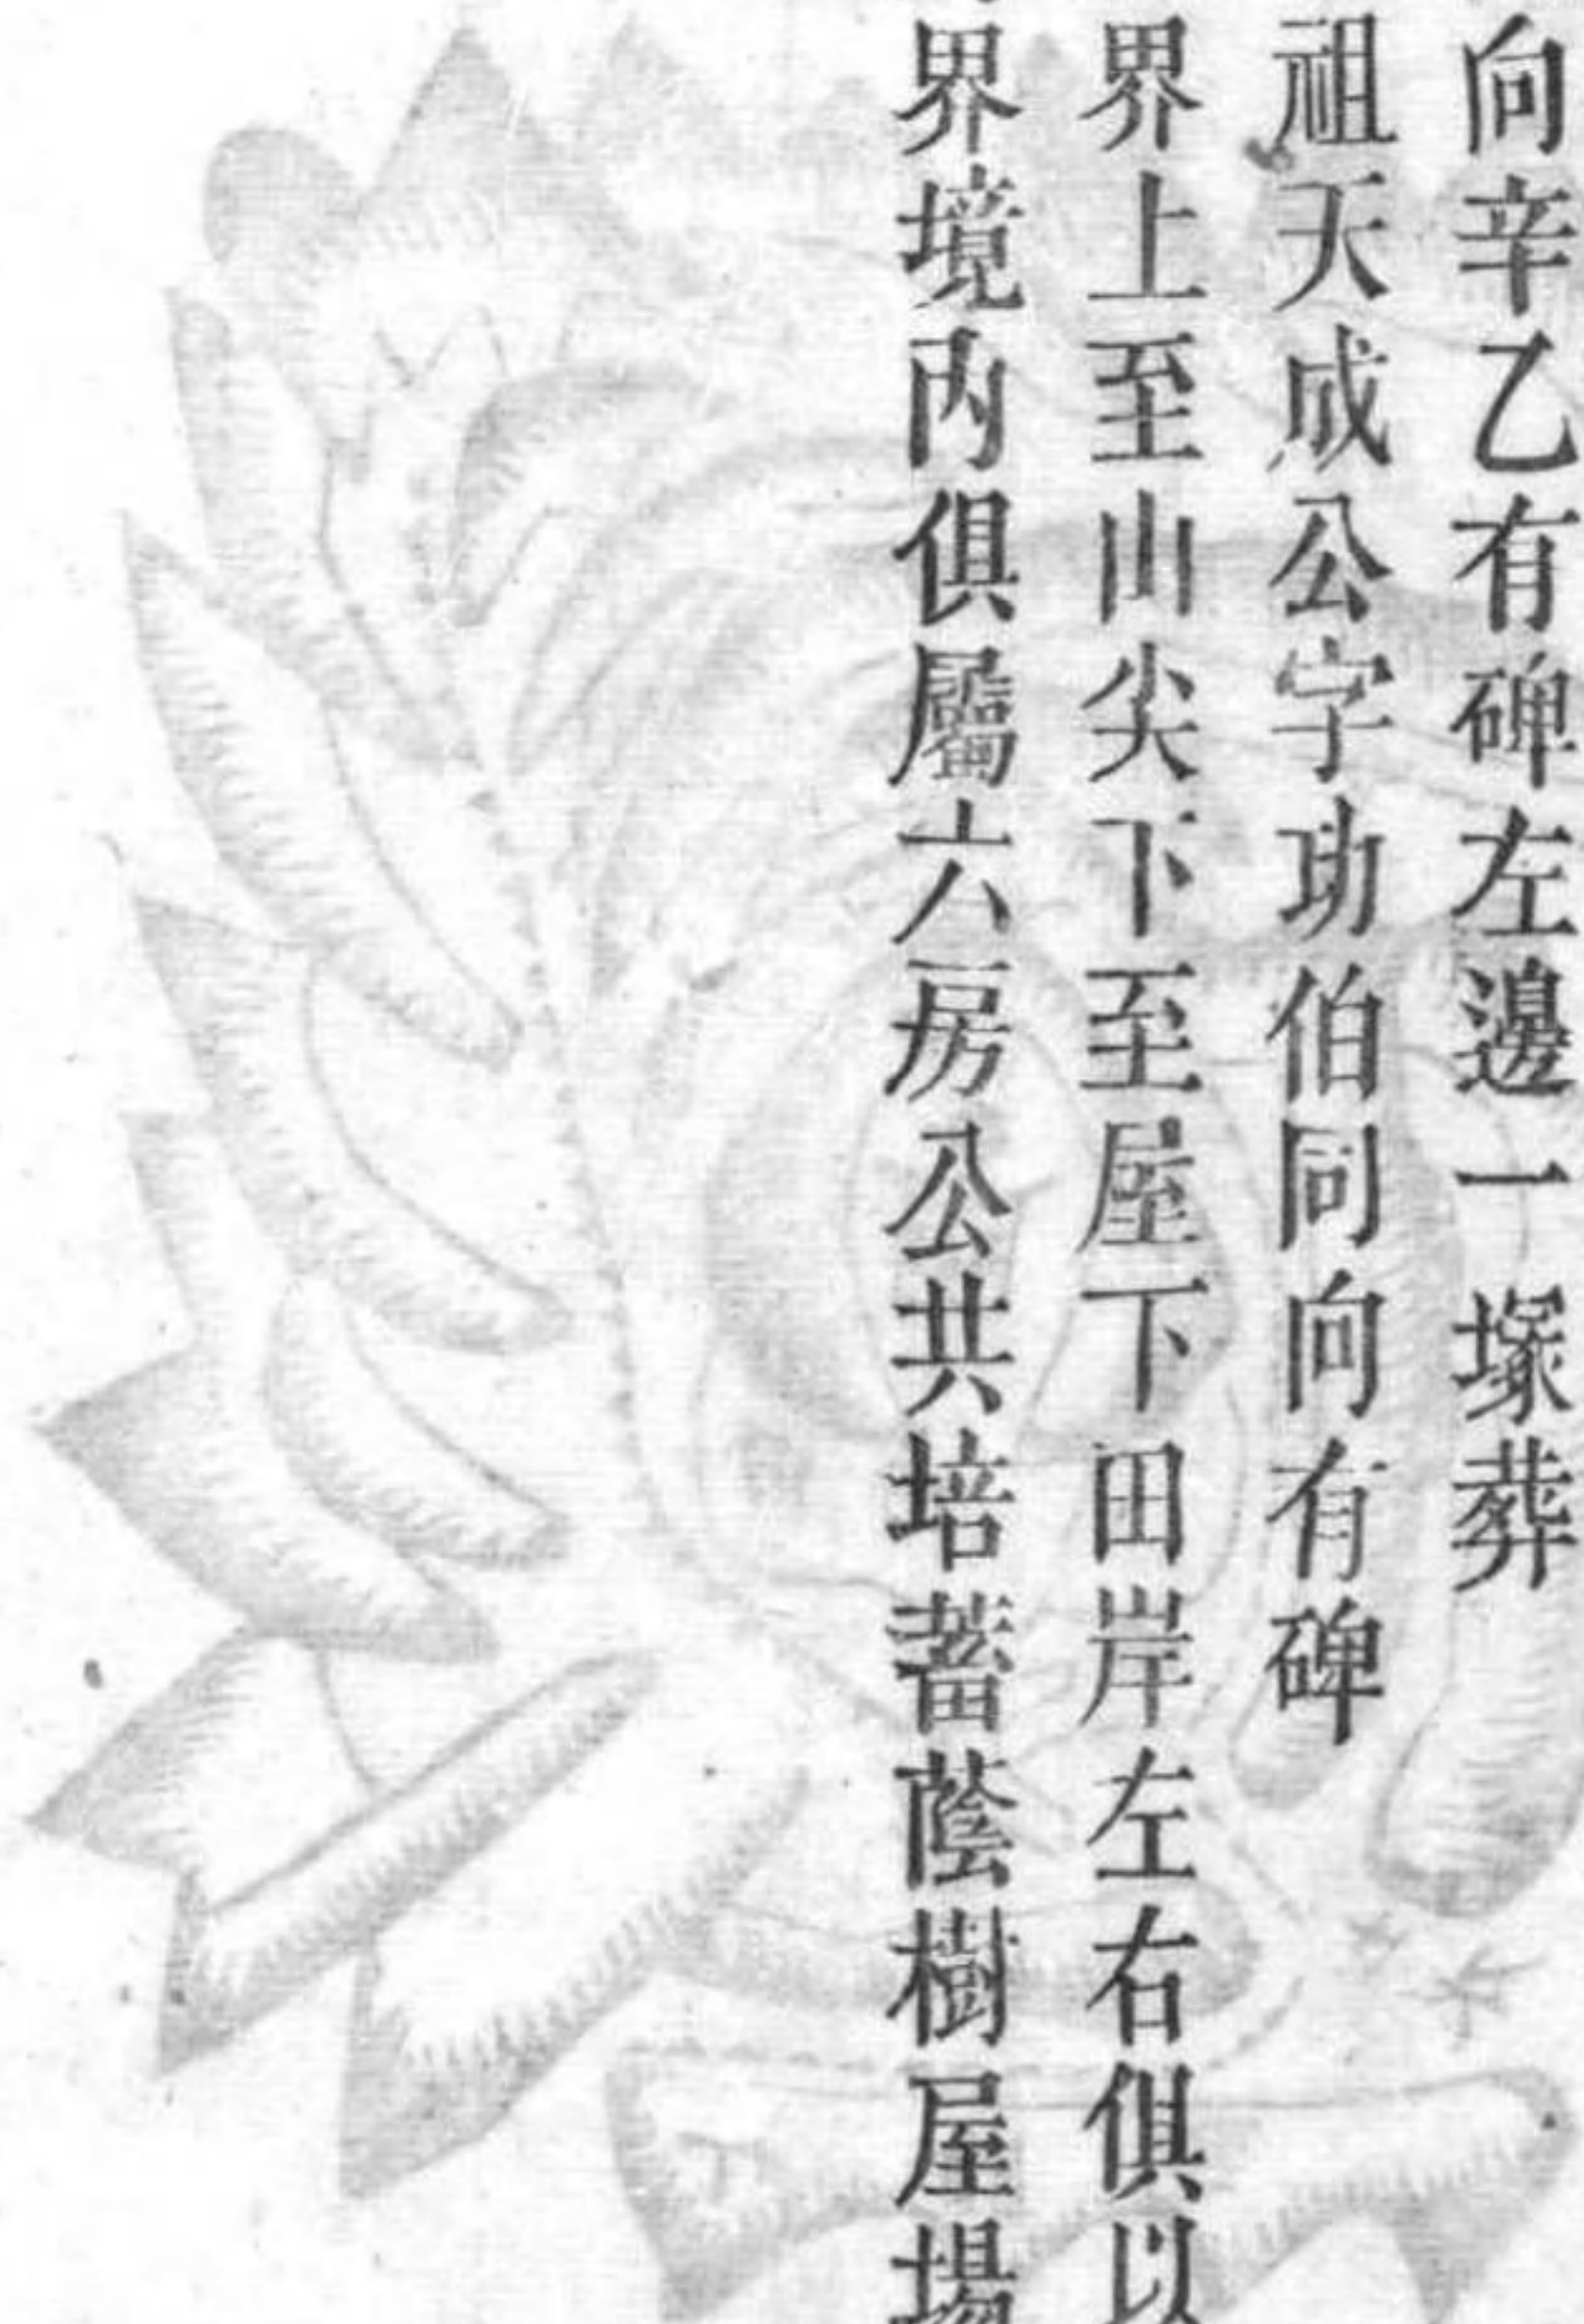 向辛乙有碑左邊一塚葬
祖天成公字功伯同向有碑
界上至山尖下至屋下田岸左右俱以
界境內俱屬六房公共培蓄蔭樹屋場